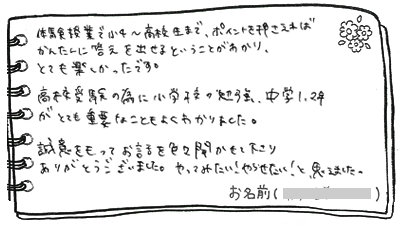 体験授業で小4～高校生まで、ポイントを押さえれば
かんたんに答えを出せるということがわかり、
とても楽しかったです。
高校受験の為に小学校の勉強、中学1,2年
がとても重要なこともよくわかりました。
誠意をもってお話を色々聞かせて下さり
ありがとうございました。やってみたい！やらせたい！と思いました。
お名前（　　　）